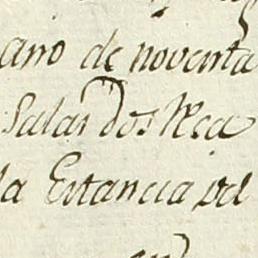 ano de noventa
Salar dos Rea
la Estancia del